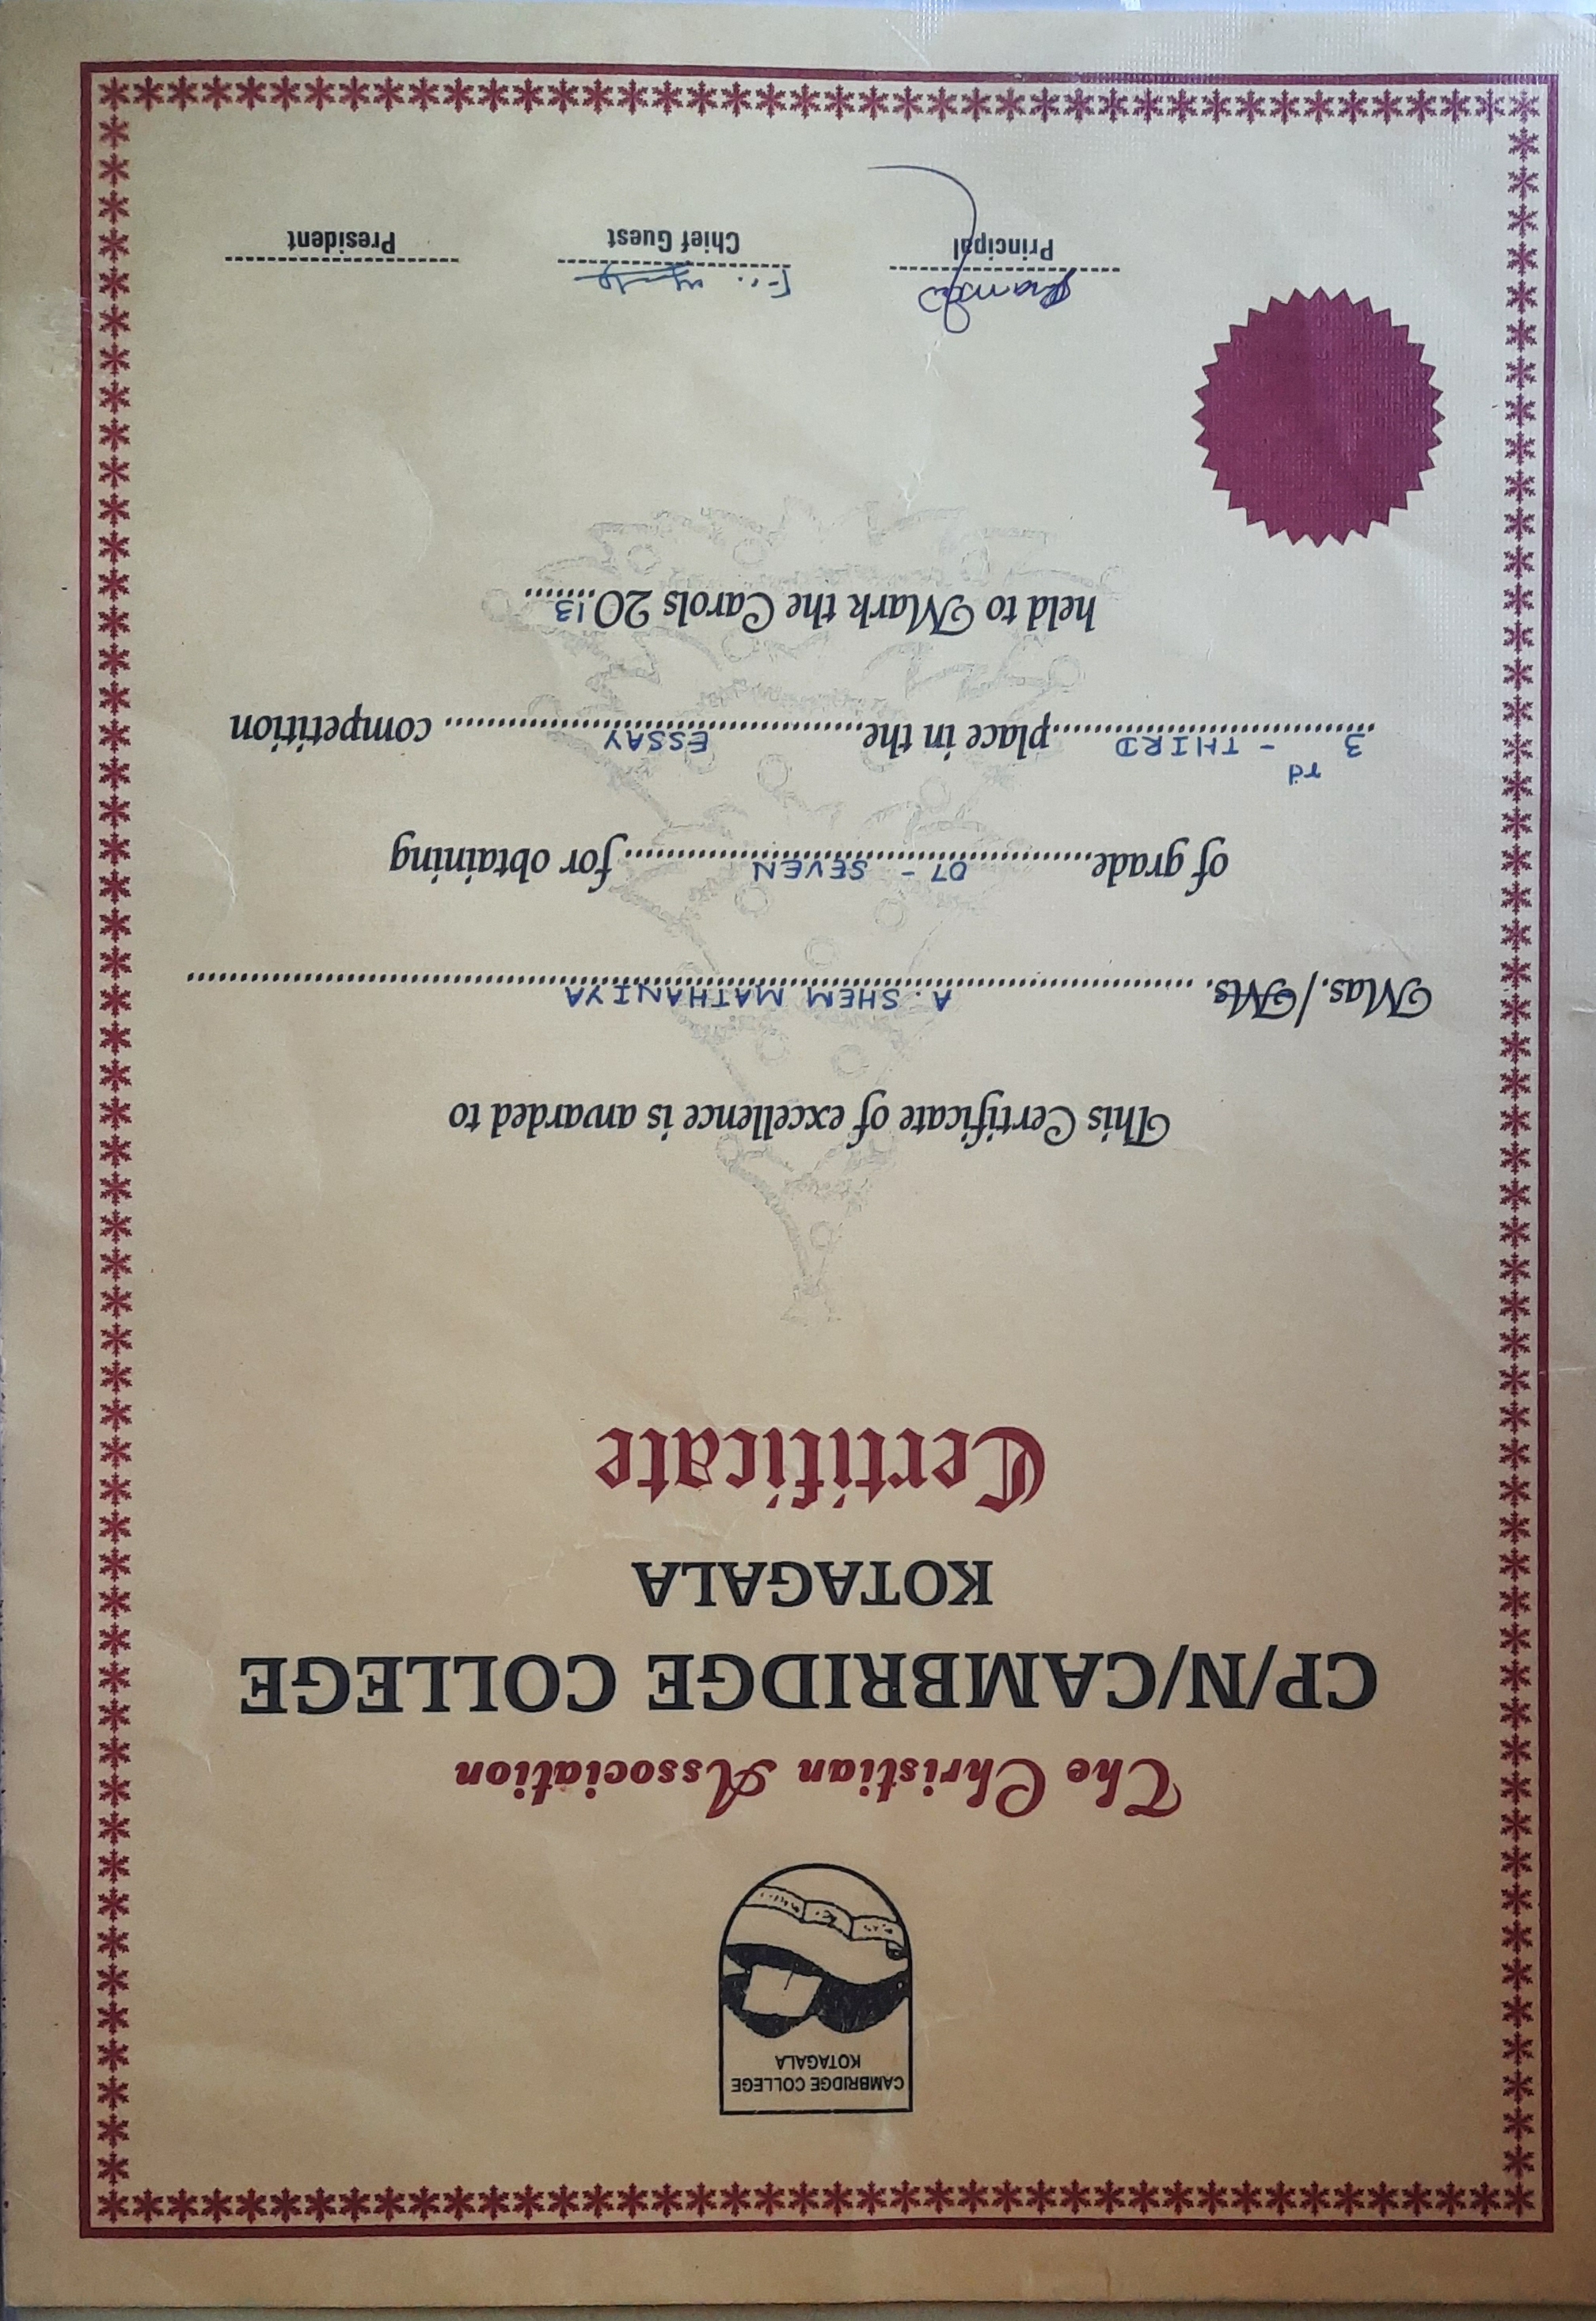 CAMBRIDGE COLLEGE
KOTAGALA
The Christian Association
CP/N/CAMBRIDGE COLLEGE
KOTAGALA
Certificate
This Certificate of excellence is awarded to
Mas./Ms. A. SHEM MATHANIYA
of grade 07 - SEVEN for obtaining
3rd - THIRD place in the ESSAY competition
held to Mark the Carols 2013
Fr.
Principal
Chief Guest
President